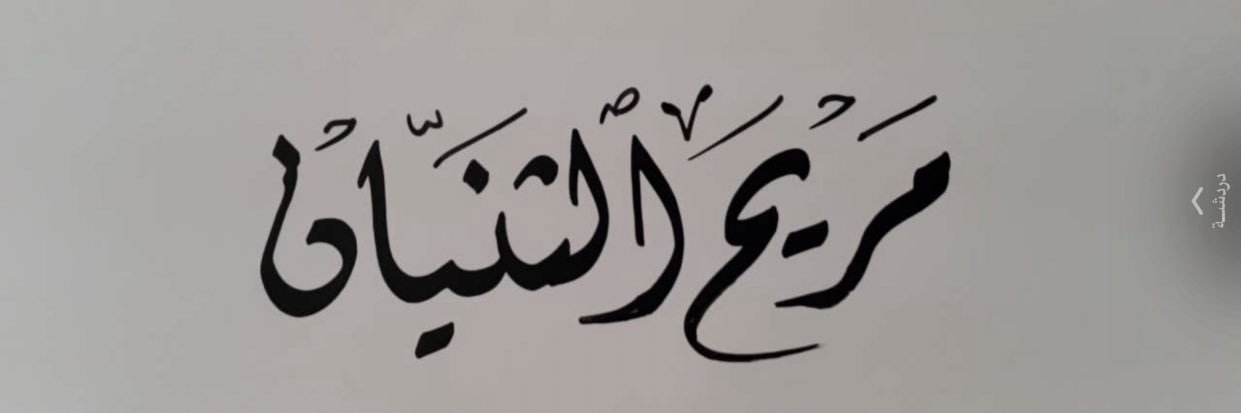 مَرْيحَ الثنَيّانْ
دردشة